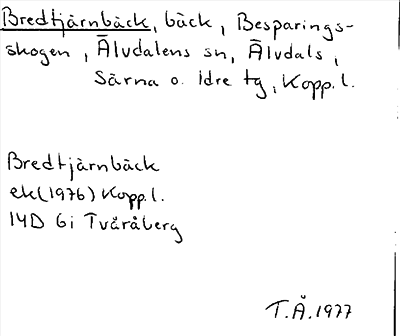 Bredtjärnbäck, bäck, Besparings-
skogen, Älvdalens sn, Älvdals,
Särna o. Idre tg, Kopp. l.
Bredtjärnbäck
ek (1976) Kopp. l.
14D 6i Tvåråberg
T.Å. 1977